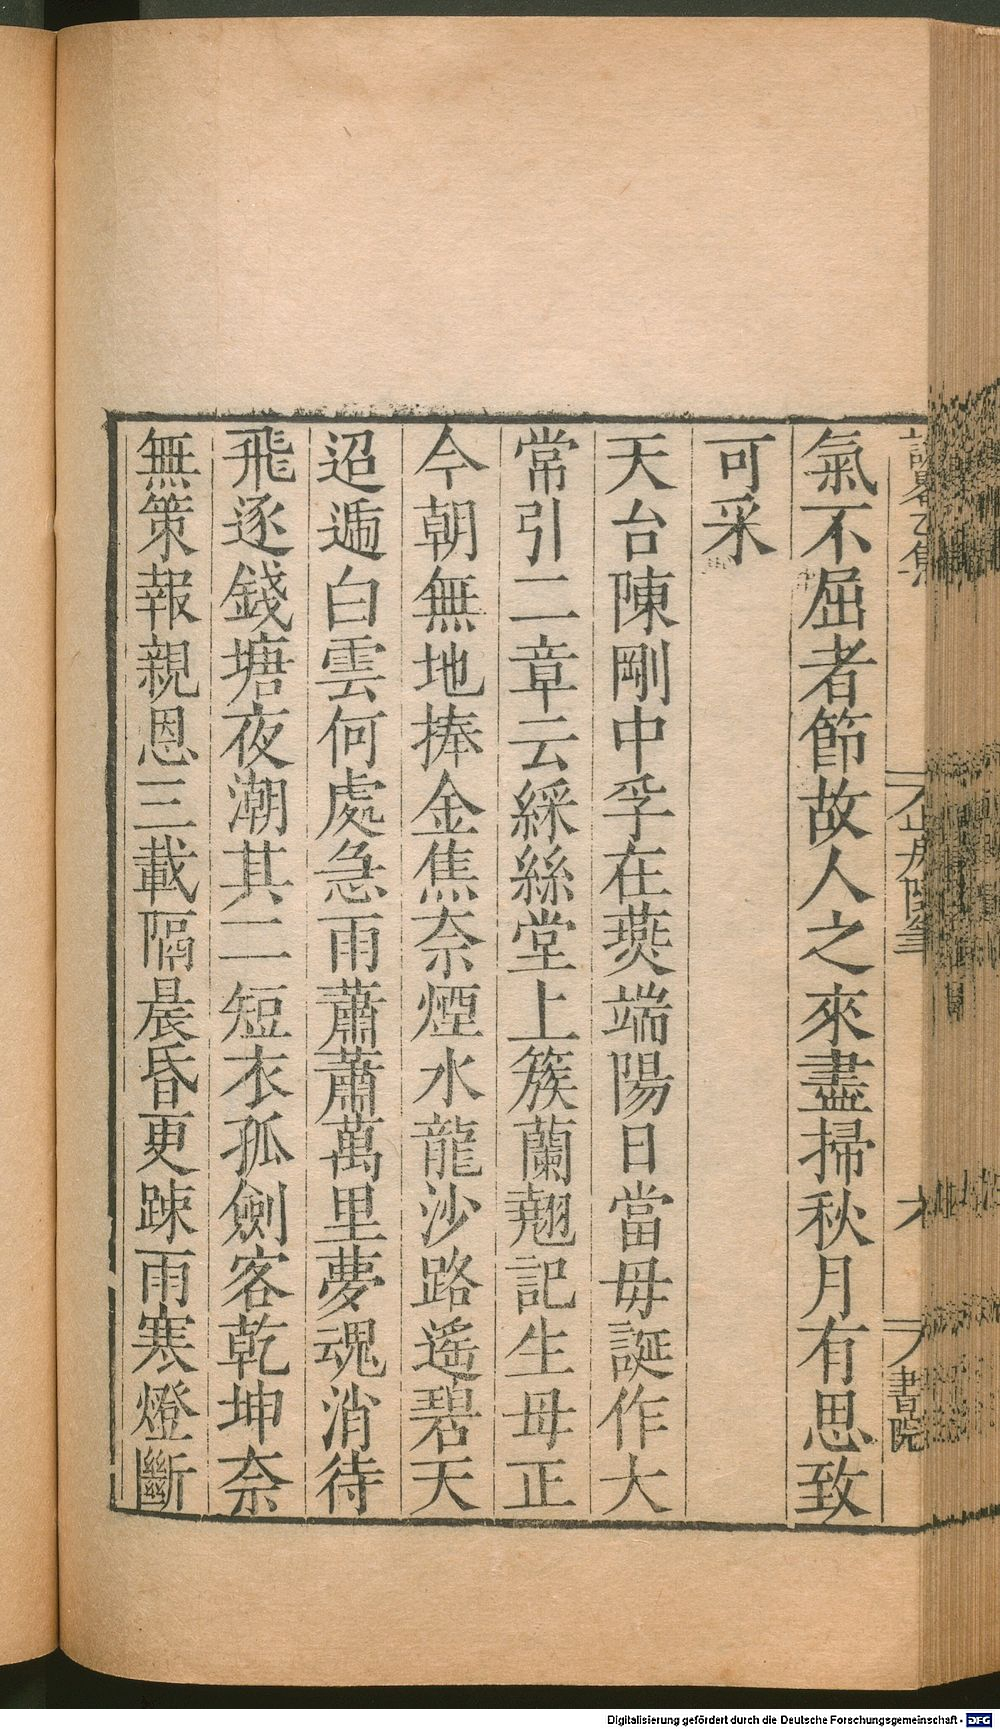 氣不屈者節故人之來盡掃秋月有思致
可采
天台陳剛中孚在燕端陽日當毋誕作大
常引二章云綵絲堂上簇蘭翹記生母正
今朝無地捧金焦奈煙水龍沙路遙碧天
迢遞白雲何處急雨蕭蕭萬里夢魂消待
飛逐錢塘夜潮其二短衣孤劍客乾坤奈
無策報親恩三載隔晨昏更踈雨寒燈斷
山房隨筆
書院
Digitalisierung gefördert durch die Deutsche Forschungsgemeinschaft - DFG